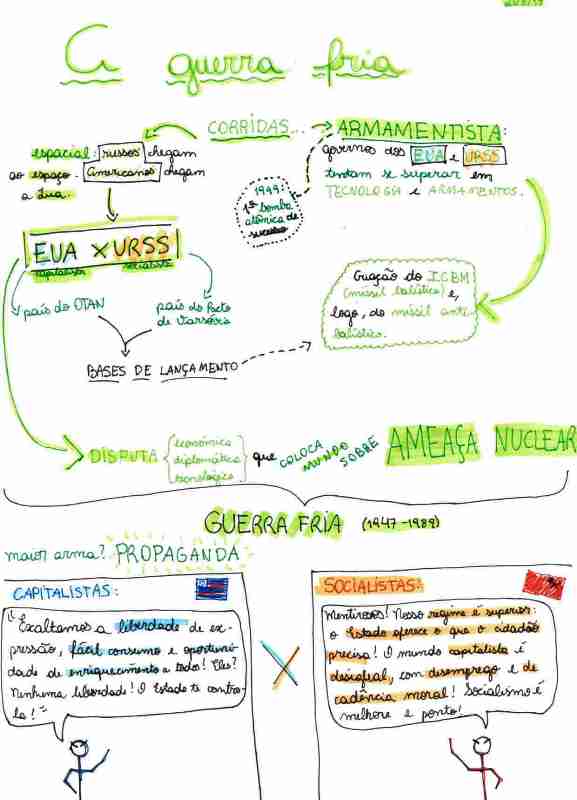 A guerra fria
CORRIDAS...
espacial: russos chegam
ao espaço. Americanos chegam
a Lua.
ARMAMENTISTA:
governos dos EUA e URSS
tentam se superar em
TECNOLOGIA e ARMAMENTOS.
1949:
1ª bomba
atômica de
EUA X URSS
capitalista socialista
país do OTAN
país do Pacto
de Varsóvia
BASES DE LANÇAMENTO
Criação do ICBM
(míssil balístico) e,
logo, do míssil anti-
balístico.
DISPUTA
econômica
diplomática
tecnológica
que COLOCA MUNDO SOBRE AMEAÇA NUCLEAR
GUERRA FRIA (1947-1989)
maior arma? PROPAGANDA
CAPITALISTAS:
"Exaltamos a liberdade de ex-
pressão, fácil consumo e oportuni-
dade de enriquecimento a todos! Eles?
Nenhuma liberdade! O Estado te contro-
la!"
X
SOCIALISTAS:
Mentirosos! Nosso regime é superior:
o Estado oferece o que o cidadão
precisa! O mundo capitalista é
desigual, com desemprego e de
cadência moral! Socialismo é
melhore e ponto!